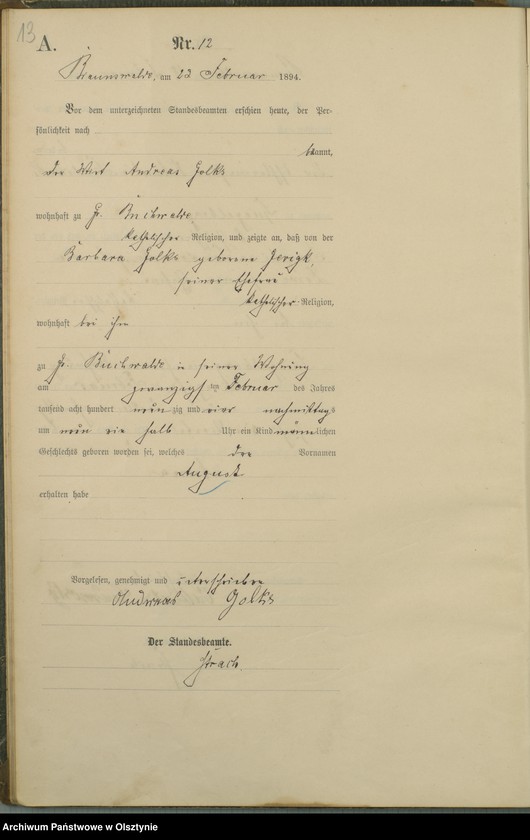 13
A. Nr. 12
Braunswalde, am 22 Februar 1894.
Vor dem unterzeichneten Standesbeamten erschien heute, der Per-
sönlichkeit nach
bekannt,
der Wirt Andreas Golks
wohnhaft zu Gr. Buchwalde
katholischer Religion, und zeigte an, daß von der
Barbara Golks geborene Gerigk,
seiner Ehefrau
katholischer Religion,
wohnhaft bei ihm
zu Gr. Buchwalde in seiner Wohnung
am zwanzigsten Februar des Jahres
tausend acht hundert neunzig und vier nachmittags
um neun ein halb Uhr ein Kind männlichen
Geschlechts geboren worden sei, welches den Vornamen
August
erhalten habe
Vorgelesen, genehmigt und unterschrieben
Andreas Golks
Der Standesbeamte.
Archiwum Państwowe w Olsztynie